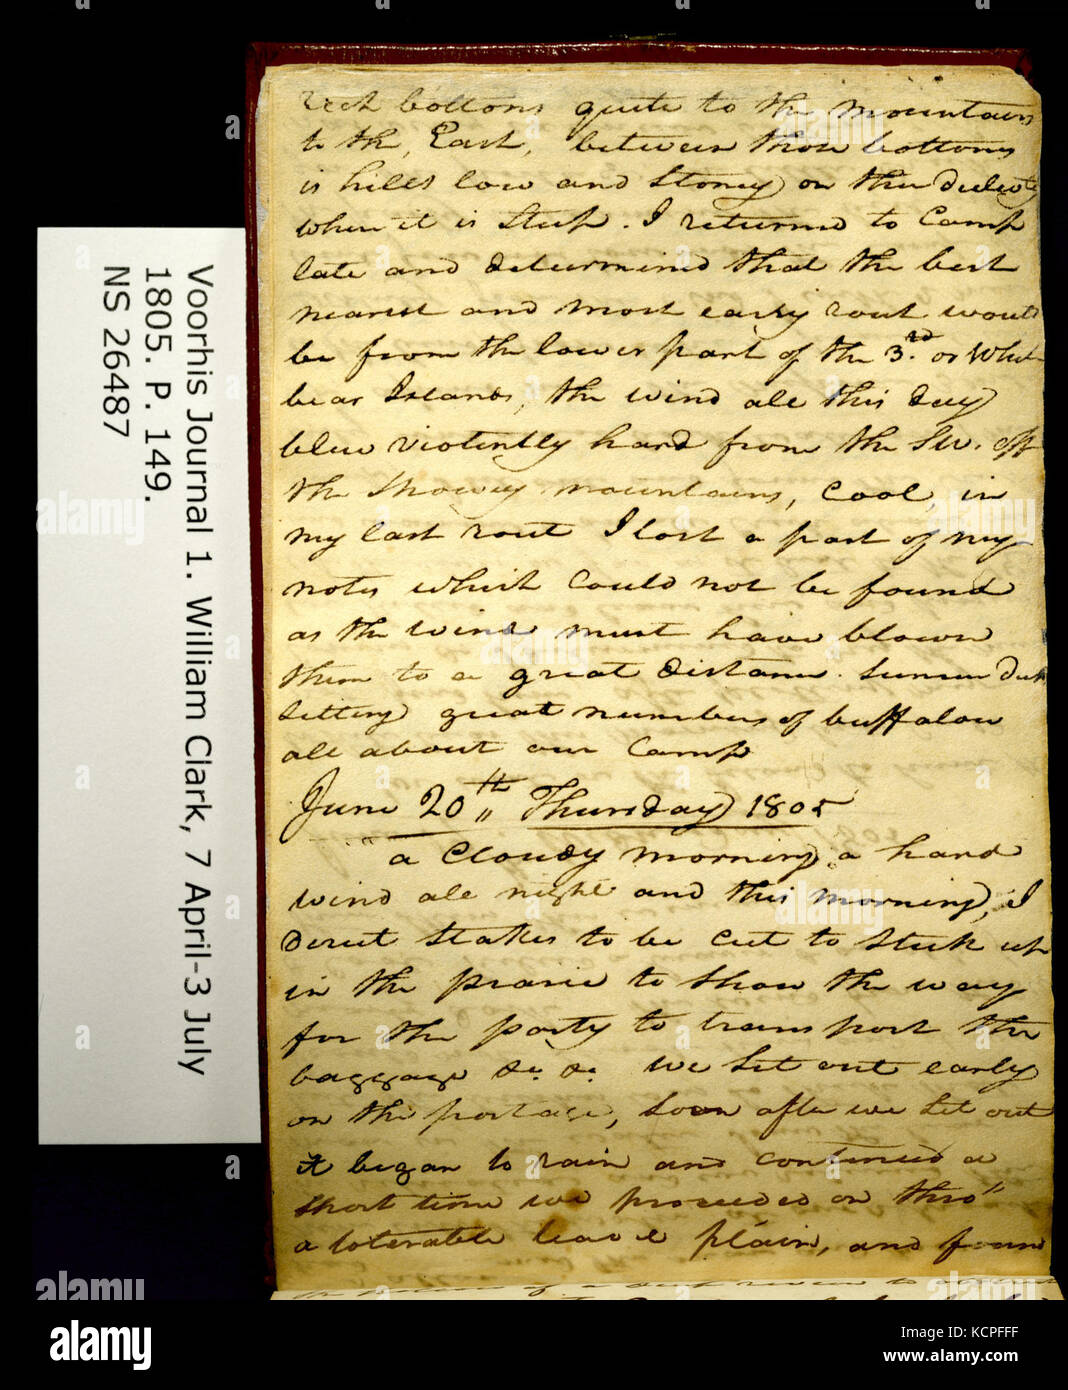 rich bottoms quite to the mountains
to the, East, between those bottoms
is hills low and Stoney on their declivity
when it is Steep. I returned to Camp
late and determined that the best
nearest and most easiy rout would
be from the lower part of the 3rd. or White
bear Islands, the wind all this day
blew violently hard from the S W. off
the Snowey mountains, Cool, in
my last rout I lost a part of my
notes which could not be found
as the wind must have blown
them to a great distance. Summer duck
Setting great numbers of buffalow
all about our Camp
June 20th Thursday 1805
a Cloudy morning, a hard
wind all night and this morning, I
direct Stakes to be Cut to Stick up
in the prarie to Show the way
for the party to transport the
baggage &c. &c. we Set out early
on the portage, Soon after we Set out
it began to rain and continued a
Short time we proceeded on thro"
a tolerable leavel plain, and found
Voorhis Journal 1. William Clark, 7 April-3 July
1805. P. 149.
NS 26487
alamy
Image ID: KCPFFF
www.alamy.com